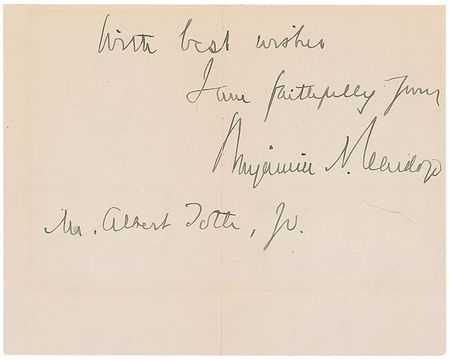 With best wishes
I am faithfully yours
Benjamin N. Cardozo
Mr. Albert Totth, Jr.